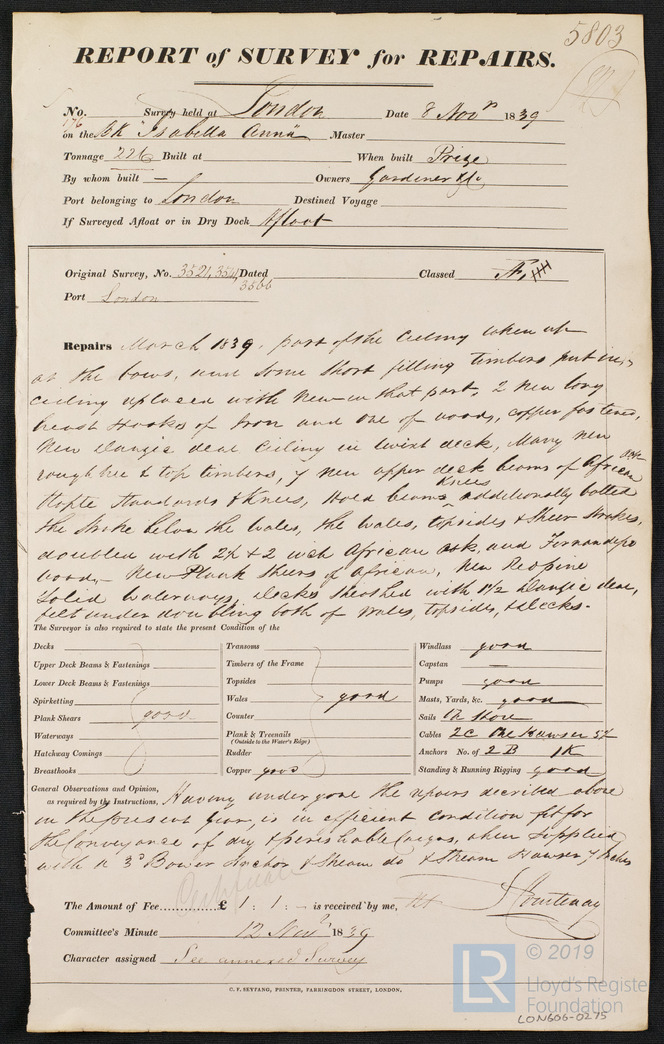 5803
REPORT of SURVEY for REPAIRS.
No. 176 Survey held at London Date 8 Novr 1839
on the Bk "Isabella Anna" Master
Tonnage 226 Built at When built Prize
By whom built — Owners Gardiner & Co
Port belonging to London Destined Voyage
If Surveyed Afloat or in Dry Dock Afloat
Original Survey, No. 3521, 354, Dated Classed
3566
Port London
Repairs March 1839. part of the Ceiling taken up
at the bows, and some short filling timbers put in,
Ceiling replaced with New in that part, 2 new long
breast Hooks of Iron and one of wood, copper fastened,
New Danzic deal Ceiling in twixt deck, Many new
roughtree & top timbers, 7 new upper deck beams of African oak
Standards & Knees, Hold beams Knees additionally bolted
the Stroke below the Wales, the Wales, topsides & Sheer Strokes,
doubled with 2½ & 2 inch African oak, and Fernandepo
wood, — New Plank Sheers of African, New Redpine
Solid Waterways, Decks Sheathed with 1½ Danzic deal,
felt under doubling both of Wales, topsides, & decks.
The Surveyor is also required to state the present Condition of the
Decks
Upper Deck Beams & Fastenings
Lower Deck Beams & Fastenings
Spirketting
Plank Shears good
Waterways
Hatchway Comings
Breasthooks
Transoms
Timbers of the Frame
Topsides
Wales good
Counter
Plank & Treenails
(Outside to the Water's Edge)
Rudder
Copper good
Windlass good
Capstan —
Pumps good
Masts, Yards, &c. good
Sails In Store
Cables 2C One Hawser
Anchors No. of 2 B 1 K
Standing & Running Rigging good
General Observations and Opinion,
as required by the Instructions. Having undergone the repairs decribed above
in the present year, is in efficient condition fit for
the Conveyance of dry & perishable Cargos, when supplied
with a 3d Bower Anchor & Stream do & Stream Hawser 7 Inches
The Amount of Fee............£ 1 : 1 : - is received by me, Courtenay
Certificate
Committee's Minute 12 Novr 1839
Character assigned See annexed Survey
C. F. SEYFANG, PRINTER, FARRINGDON STREET, LONDON.
LR © 2019
Lloyd's Registe
Foundation
LON606-0275